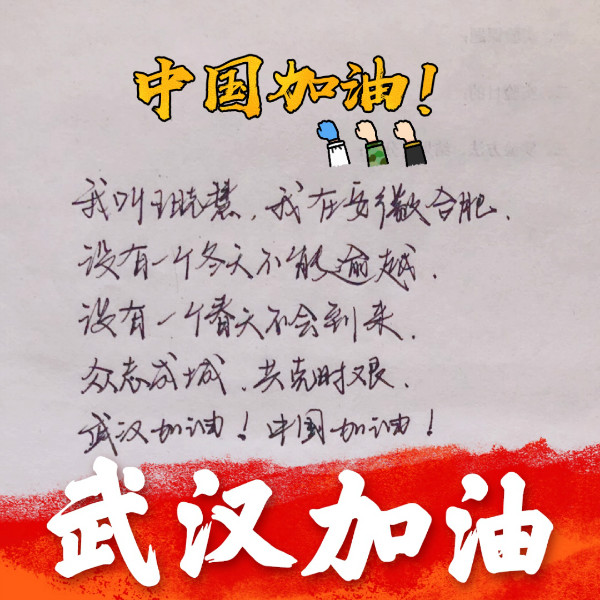 中国加油!
我叫王晓慧,我在安徽合肥,
没有一个冬天不能逾越,
没有一个春天不会到来,
众志成城,共克时艰,
武汉加油!中国加油!
武汉加油